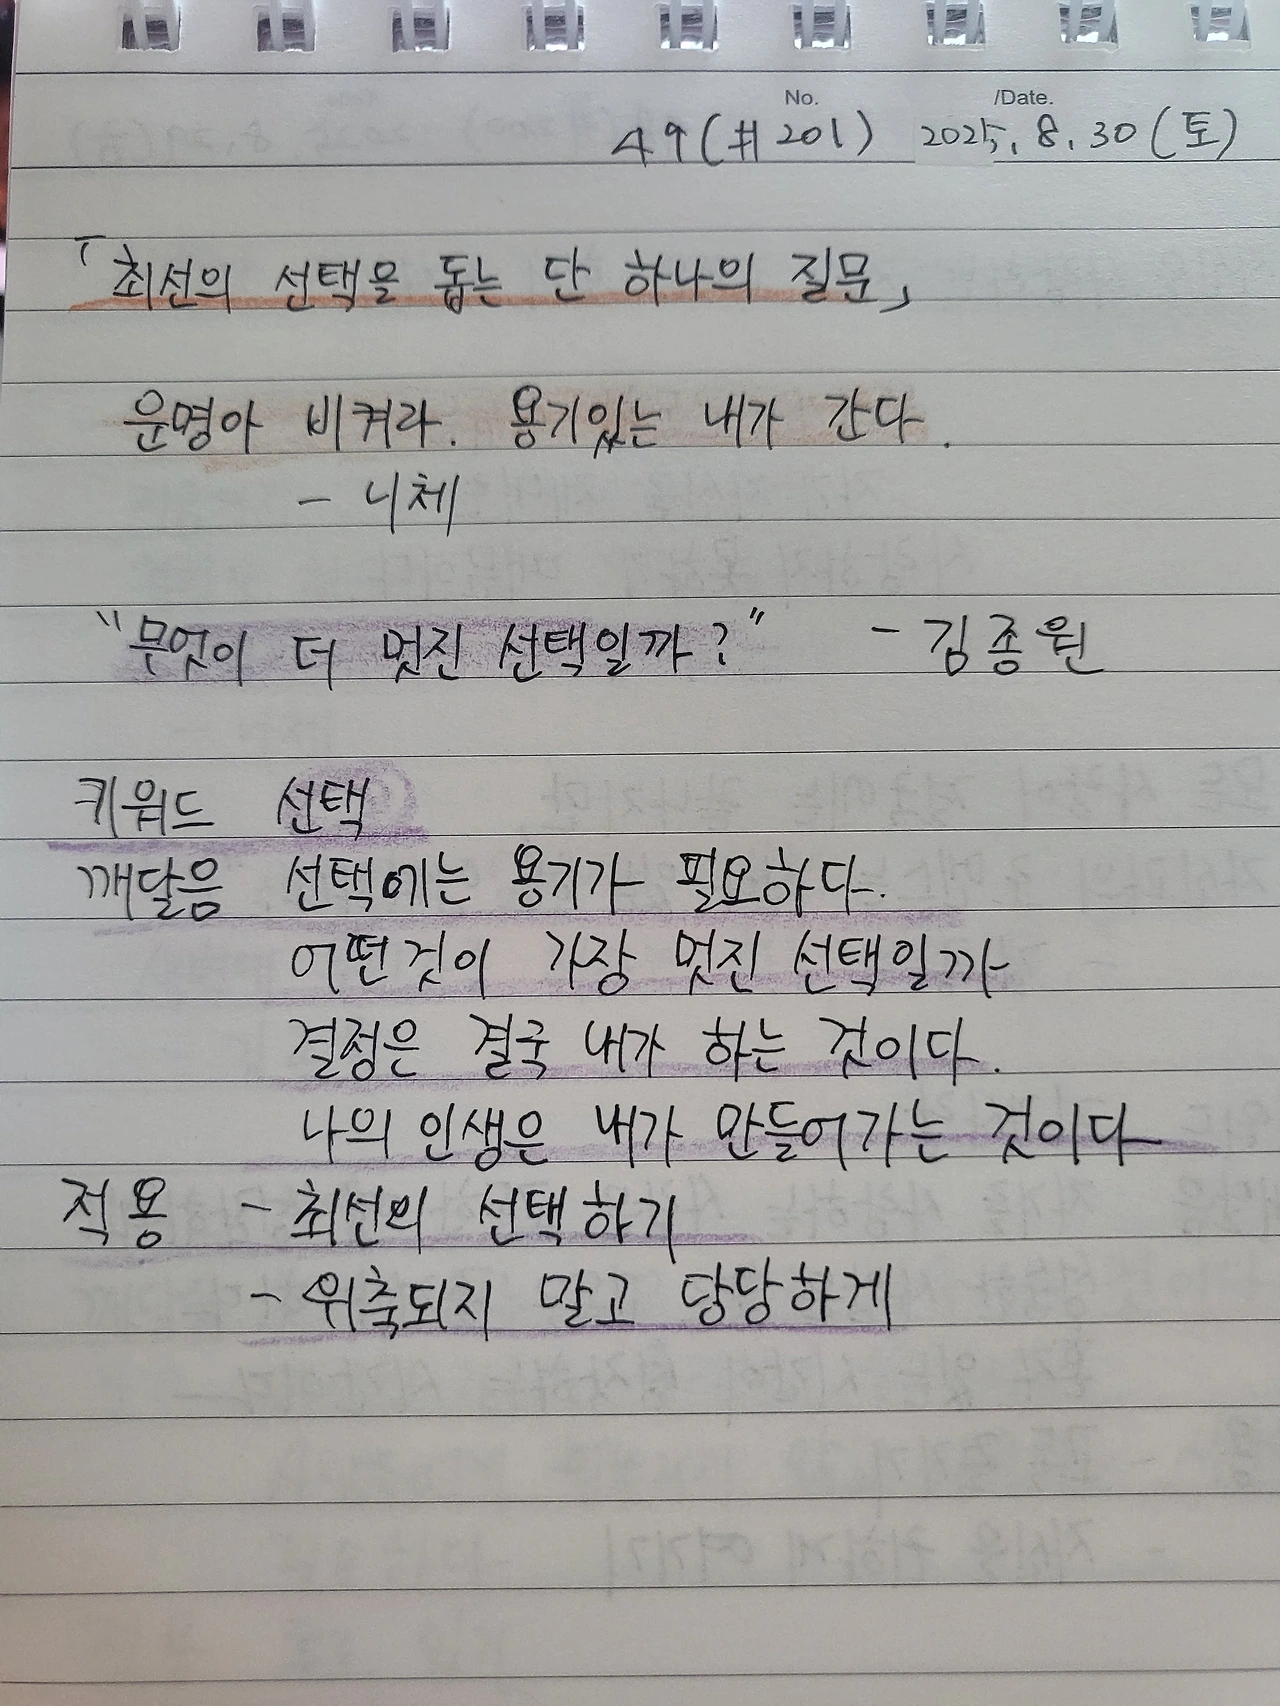 No. /Date.
49(#201) 2025. 8. 30 (토)
「최선의 선택을 돕는 단 하나의 질문」
운명아 비켜라. 용기있는 내가 간다.
- 니체
"무엇이 더 멋진 선택일까?" - 김종원
키워드 선택
깨달음 선택에는 용기가 필요하다.
어떤것이 가장 멋진 선택일까
결정은 결국 내가 하는 것이다.
나의 인생은 내가 만들어가는 것이다
적용 - 최선의 선택하기
- 위축되지 말고 당당하게